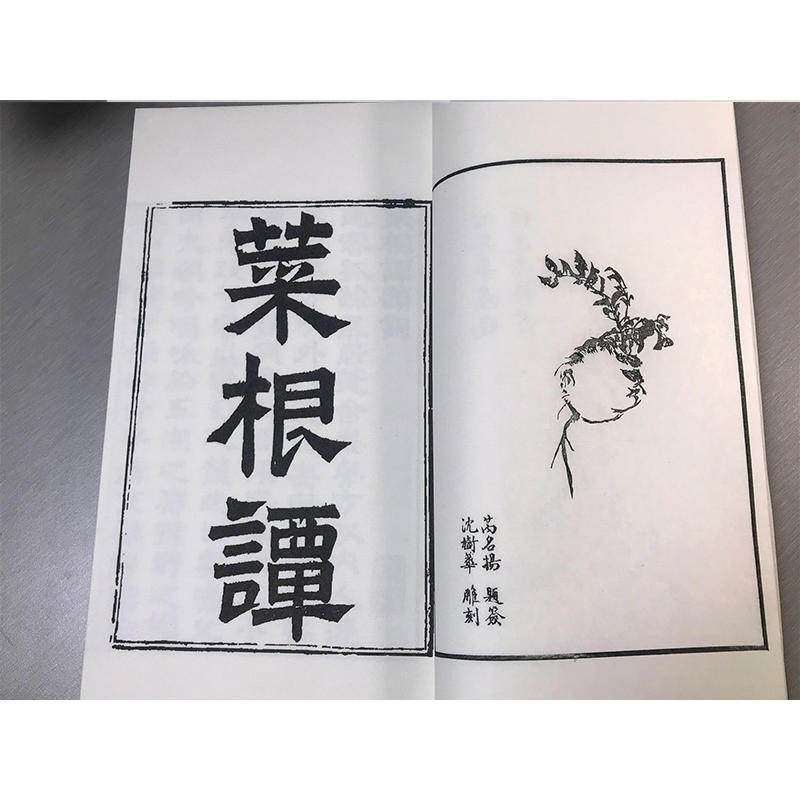 菜根譚
芮名揚 題簽
沈樹華 雕刻